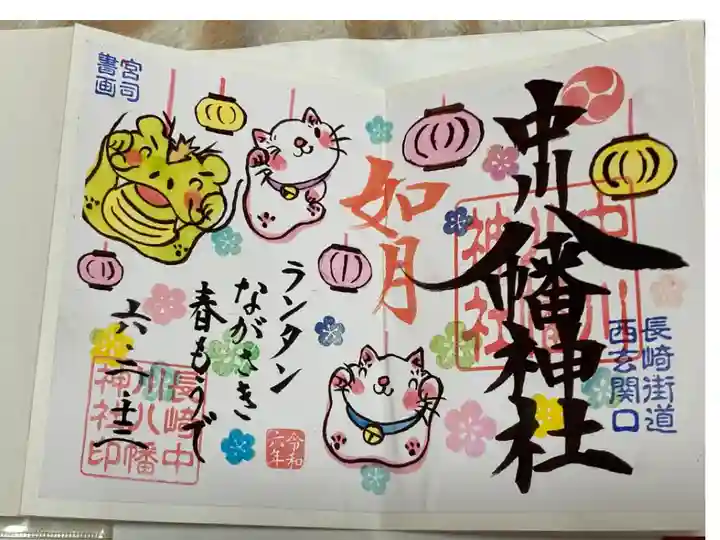 中川八幡神社
中川八幡神社
長崎街道
西玄関口
如月
ランタン
ながさき
春もうで
令和
六年
長崎中
川八幡
神社印
宮司
書画